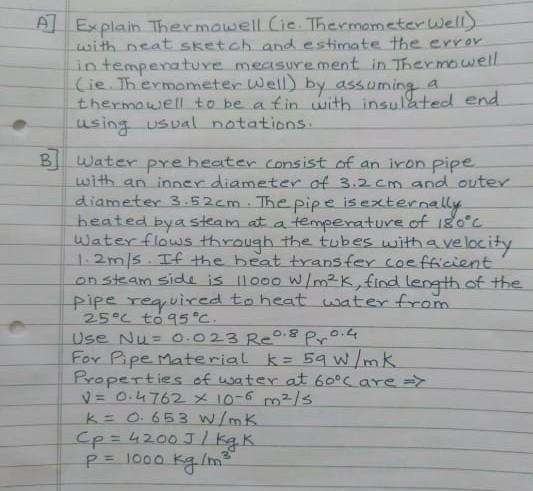 A] Explain Thermowell (ie. Thermometer Well)
with neat sketch and estimate the error
in temperature measurement in Thermowell
(ie. Thermometer Well) by assuming a
thermowell to be a fin with insulated end
using usual notations.
B] Water preheater consist of an iron pipe
with an inner diameter of 3.2 cm and outer
diameter 3.52cm. The pipe is externally
heated by a steam at a temperature of 180°C
Water flows through the tubes with a velocity
1.2m/s. If the heat transfer coefficient
on steam side is 11000 W/m²K, find length of the
pipe required to heat water from
25°C to 95°C.
Use Nu = 0.023 Re^0.8 Pr^0.4
For Pipe Material k = 59 W/mK
Properties of water at 60°C are =>
ν = 0.4762 × 10^-6 m²/s
K = 0.653 W/mK
Cp = 4200 J/kg K
ρ = 1000 kg/m³